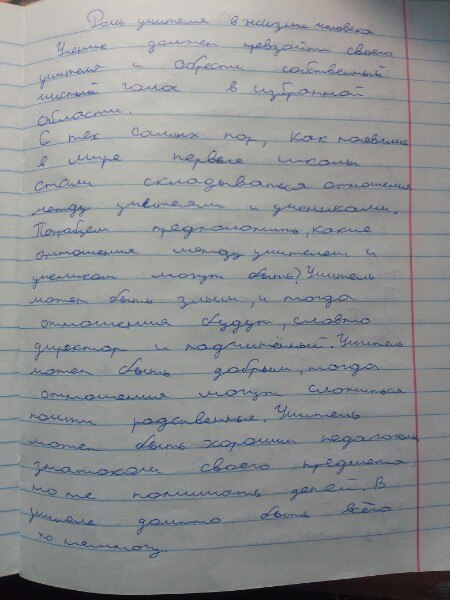 Роль учителя в жизни человека
Ученик должен превзойти своего
учителя и обрести собственный
чистый голос в избранной
области.
С тех самых пор, как появились
в мире первые школы
стали складываться отношения
между учителями и учениками.
Попробуем предположить, какие
отношения между учителем и
учеником могут быть? Учитель
может быть злым, и тогда
отношения будут, словно
директор и подчинённый. Учитель
может быть добрым, тогда
отношения могут сложиться
почти родственные. Учитель
может быть хорошим педагогом,
знатоком своего предмета,
но не понимать детей. В
учителе должно быть всего
по немногу.